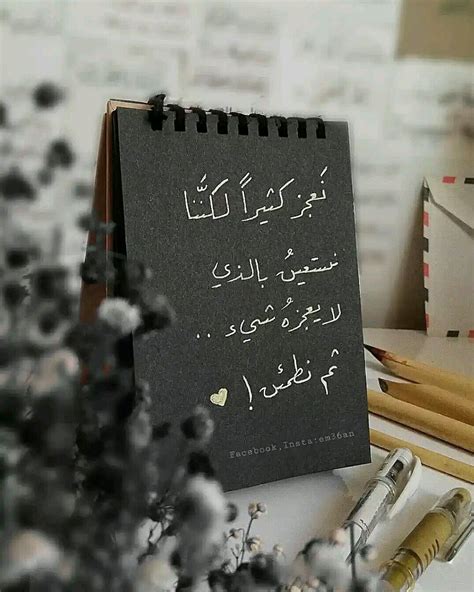 نَعجز كثيراً لكنَّنا
نستعينُ بالذي
لا يعجزهُ شيء ..
ثم نطمئن !
Facebook,Insta:em36an